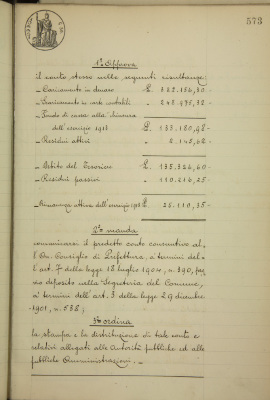 573
1° Approva
il conto stesso nelle seguenti risultanze:
- Caricamento in denaro £.
- Fondo di cassa alla chiusura
dell'esercizio 1913 £. 133.180,98 -
- Residui attivi " 2.143,62 -
- Debito del Tesoriere £. 135.324,60
- Residui passivi " 110.214,25 -
- Rimanenza attiva dell'esercizio 1913 £. 25.110,35 -
2° manda
comunicarsi il predetto conto consuntivo al-
l'On. Consiglio di Prefettura, a' termini del-
l'art. 7 della legge 12 luglio 1904, n. 390, pre-
vio deposito nella Segreteria del Comune,
a' termini dell'art. 3 della legge 29 dicembre
1901, n. 538;
3° ordina
la stampa e la distribuzione di tale conto e
relativi allegati alle Autorità pubbliche ed alle
pubbliche Amministrazioni. -